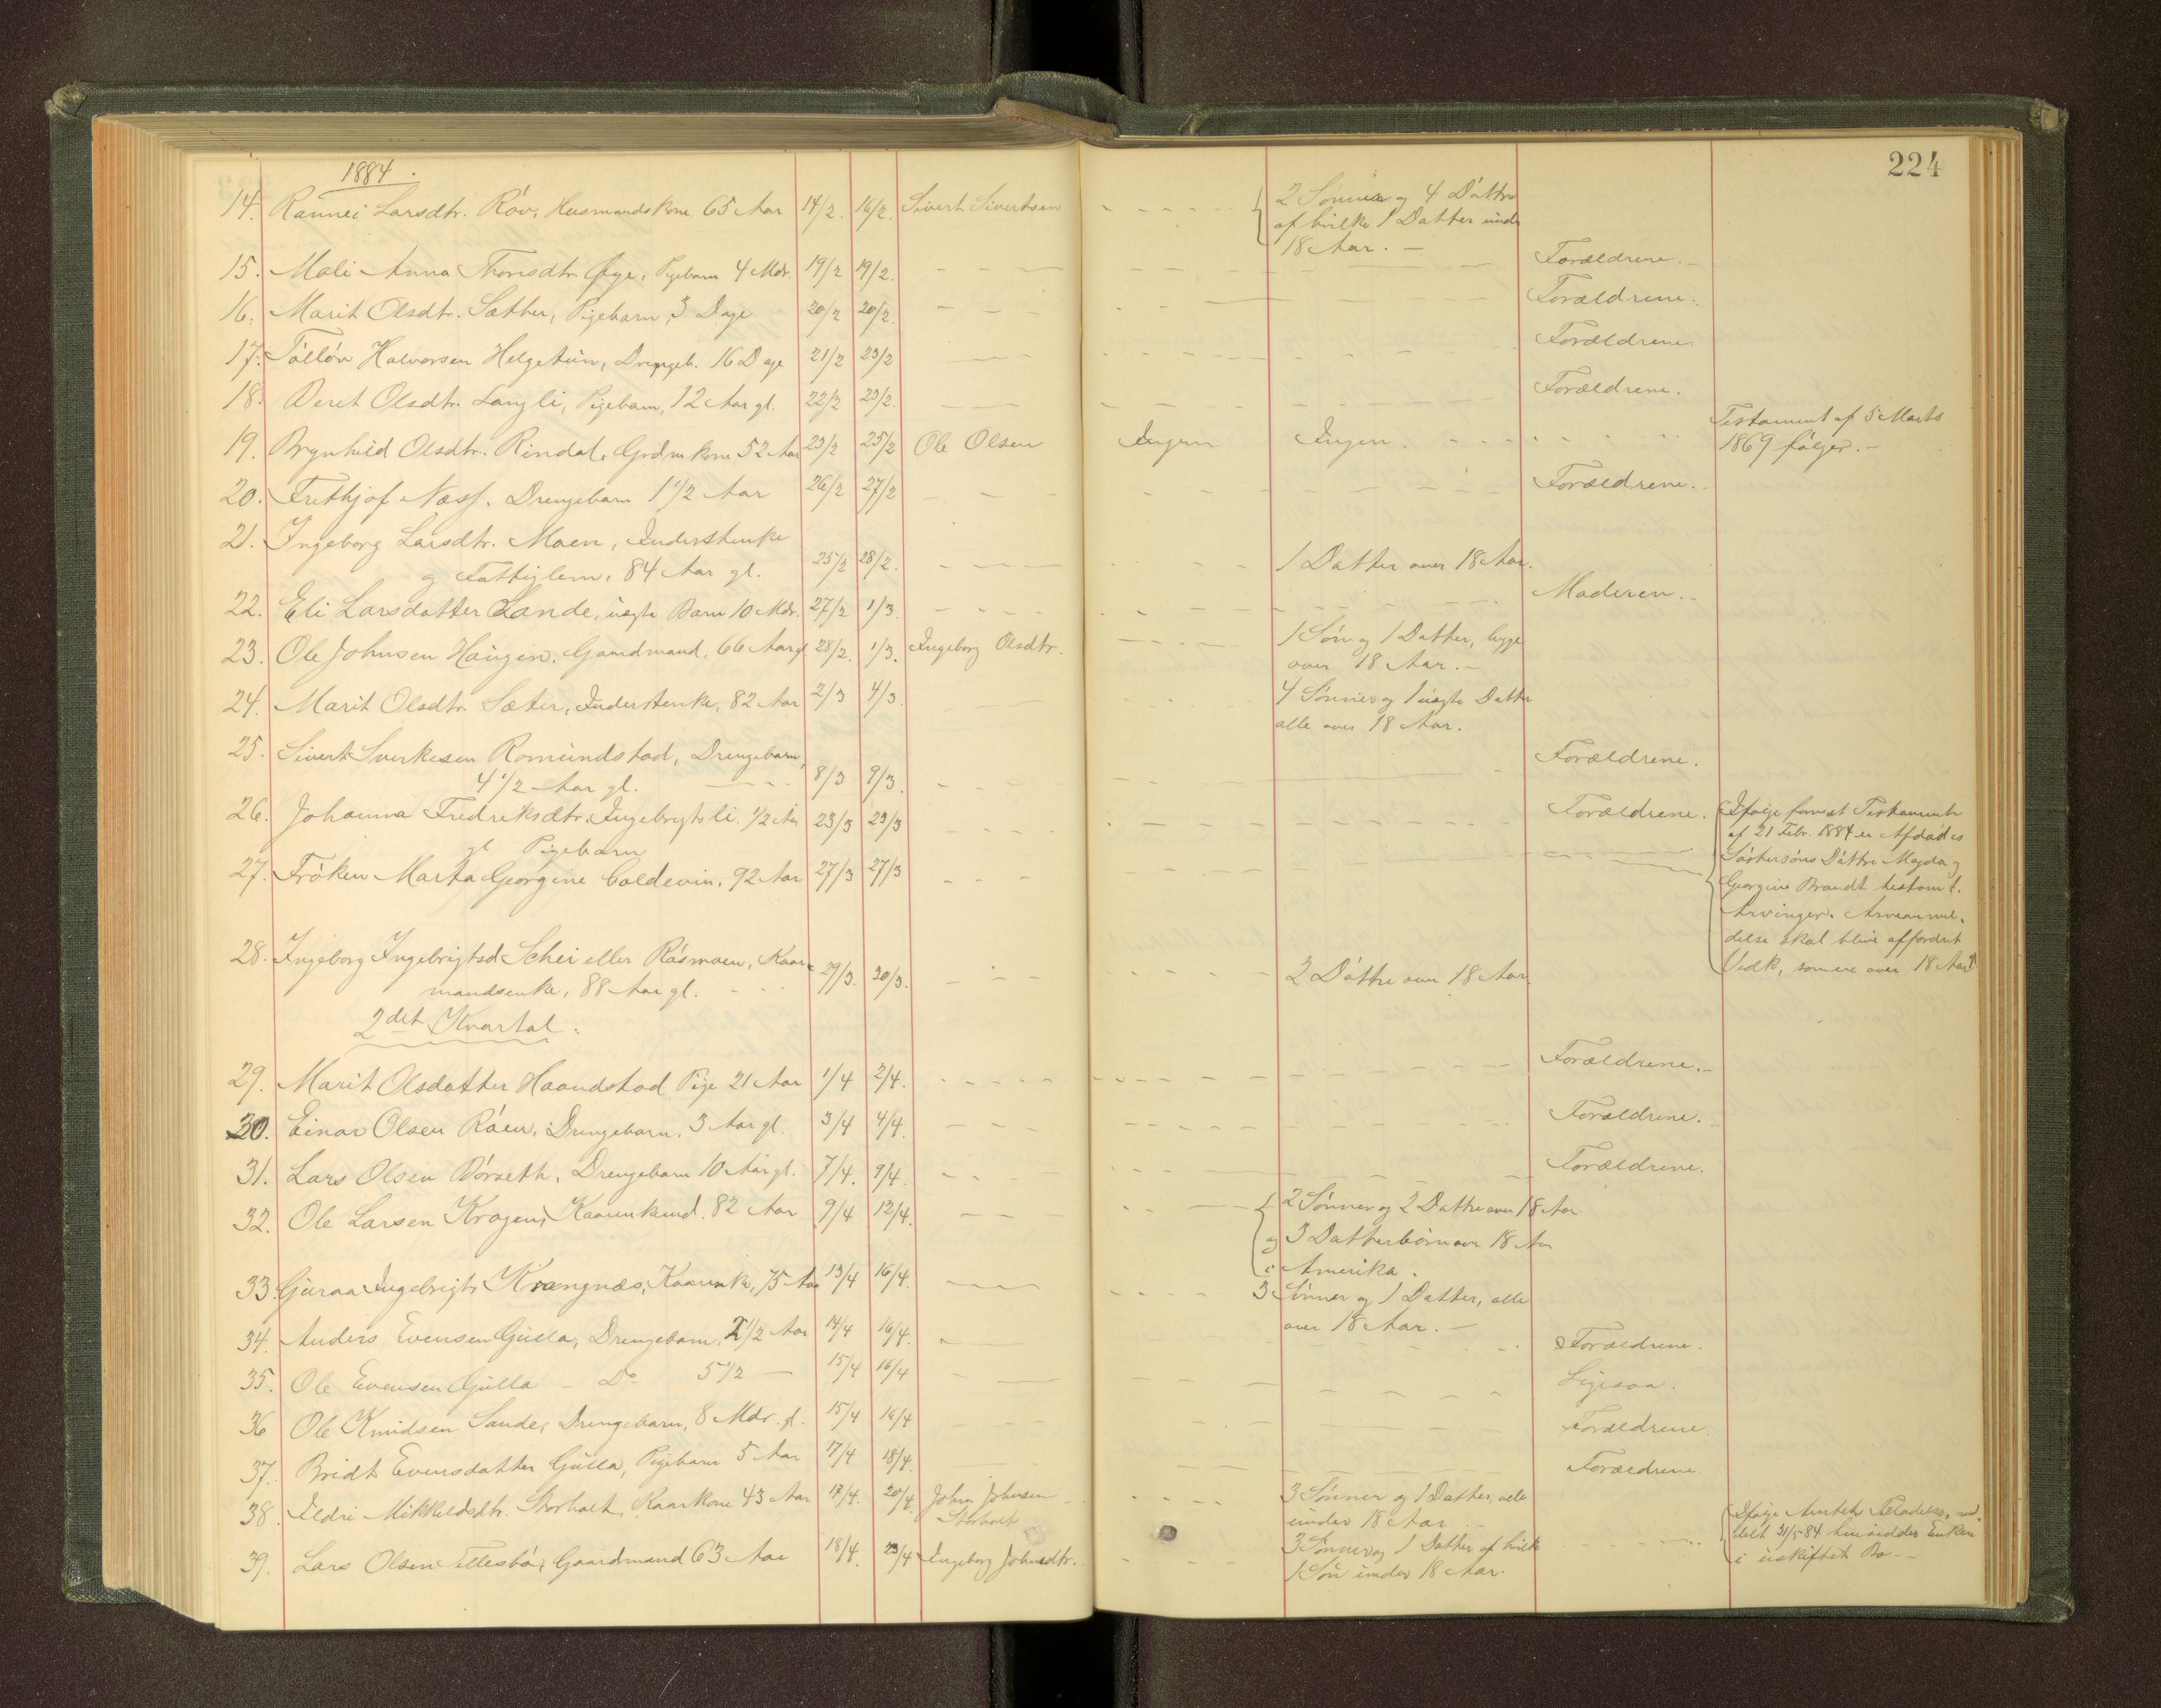 1884.
224
14. Rannei Larsdtr. Röv, Husmandskone 65 Aar 14/2. 16/2. Sivert Sivertsen 2 Sønner og 4 Døttre
af hvilke 1 Datter unde
18 Aar. —
15. Mali Anna Thorisdtr. Øye, Pigebarn 4 Mdr. 19/2 19/2. Forældrene. —
16. Marit Olsdtr. Sæther, Pigebarn, 3 Dage 20/2 20/2. Forældrene.
17. Tölløv Halvorsen Helgetun, Drengeb. 16 Dage 21/2 23/2 Forældrene.
18. Beret Olsdtr. Langli, Pigebarn, 12 Aar gl. 22/2 23/2. Forældrene.
19. Brynhild Olsdtr. Rindal, Grdmkone 52 Aar 23/2 25/2 Ole Olsen Ingen Ingen. Testament af 5 Marts
1869 følger. —
20. Frithjof Næss. Drengebarn 1 1/2 Aar 26/2 27/2 Forældrene.
21. Ingeborg Larsdtr. Moen, Inderstenke
og Fattiglem, 84 Aar gl. 25/2 28/2. 1 Datter over 18 Aar.
22. Eli Larsdatter Lande, uægte Barn 10 Mdr. 27/2 1/3. Moderen. —
23. Ole Johnsen Haugen, Gaardmand, 66 Aar gl. 28/2. 1/3. Ingeborg Olsdtr. 1 Søn og 1 Datter, begge
over 18 Aar. —
24. Marit Olsdtr. Sæter, Inderstenke, 82 Aar 2/3 4/3 4 Sønner og 1 uægte Datter
alle over 18 Aar.
25. Sivert Sverkesen Romundstad, Drengebarn,
4 1/2 Aar gl. 8/3 9/3. Forældrene.
26. Johanna Fredriksdtr. Ingebrigtsli. 1/2 Aar 23/3 23/3 Forældrene.
gl Pigebarn
27. Frøken Marta Georgine Coldevin, 92 Aar 27/3 27/3
Ifølge forevist Testamente
af 21 Febr. 1884 er Afdødes
Søstersøns Døttre Magda og
Georgine Brandt testamt.
Arvinger. Arveanmel-
delse skal blive affordret
Vedk, som ere over 18 Aar.
28. Ingeborg Ingebrigtsd Schei eller Rösmoen, Kaar-
mandsenke, 88 Aar gl. 29/3. 30/3. 2 Døttre over 18 Aar
2det Kvartal.
29. Marit Olsdatter Haandstad Pige 21 Aar 1/4 2/4. Forældrene.
30. Einar Olsen Röen, Drengebarn, 3 Aar gl. 3/4 4/4. Forældrene.
31. Lars Olsen Børseth, Drengebarn 10 Aar gl. 7/4. 9/4. Forældrene.
32. Ole Larsen Krogen, Kaarenkmd. 82 Aar 9/4 12/4. 2 Sønner og 2 Døttre over 18 Aar
og 3 Datterbørn over 18 Aar
i Amerika.
33. Guraa Ingebrigts Krangnæs, Kaarenke, 75 Aar 13/4 16/4. 3 Sønner og 1 Datter, alle
over 18 Aar. —
34. Anders Evensen Gulla, Drengebarn, 2 1/2 Aar 14/4 16/4. Forældrene.
35. Ole Evensen Gulla - Do 5 1/2 — 15/4 16/4 Ligesaa.
36 Ole Knudsen Sande, Drengebarn, 8 Mdr. gl. 15/4 16/4 Forældrene.
37. Bridt Evensdatter Gulla, Pigebarn 5 Aar 17/4 18/4. Forældrene.
38. Ildri Mikkelsdtr. Storholt, Kaarkone 43 Aar 17/4. 20/4. John Johnsen
Storholt 3 Sønner og 1 Datter, alle
under 18 Aar
39. Lars Olsen Tellesbø, Gaardmand 63 Aar 18/4. 23/4 Ingeborg Johnsdtr. 3 Sønner og 1 Datter af hvilke
1 Søn under 18 Aar.
Ifølge Amtets Tilladelse, med-
delt 31/5 84 hensidder Enken
i uskiftet Bo. —